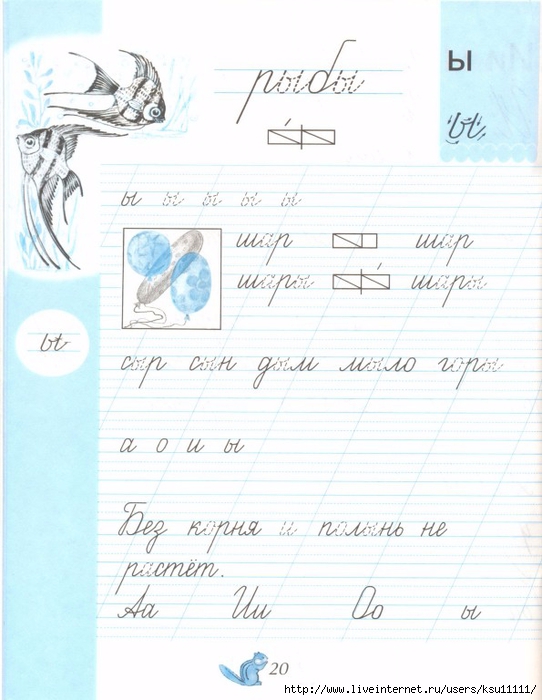 ы
рыбы
ы
ы ы ы ы ы
шар шар
шары шары
ы
сыр сын дым мыло горы
а о и ы
Без корня и полынь не
растёт.
Аа Ии Оо ы
20
http://www.liveinternet.ru/users/ksu11111/